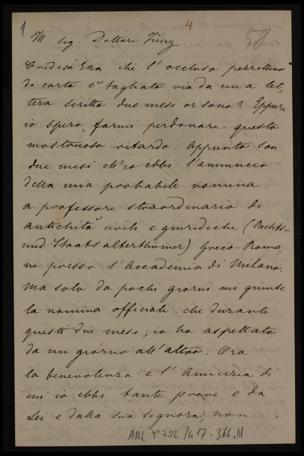 1
4
58
Ill. sig. Dottore Zunz
Crederà Ella che l'accluso pezzettino
di carta è tagliato via da una let-
tera scritta due mesi or sono? Eppure
io spero farmi perdonare questo
mostruoso ritardo. Appunto son
due mesi ch'io ebbi l'annuncio
della mia probabile nomina
a professore straordinario di
antichità civili e giuridiche (Rechts-
und Staatsalterthümer) Greco-Roma-
ne presso l'Accademia di Milano.
Ma solo da pochi giorni mi giunse
la nomina officiale, che durante
questi due mesi, io ho aspettato
da un giorno all'altro. Ora
la benevolenza e l'amicizia di
cui io ebbi tante prove e da
Lei e dalla sua signora, non
ARC 4° 792 / G17-366.11